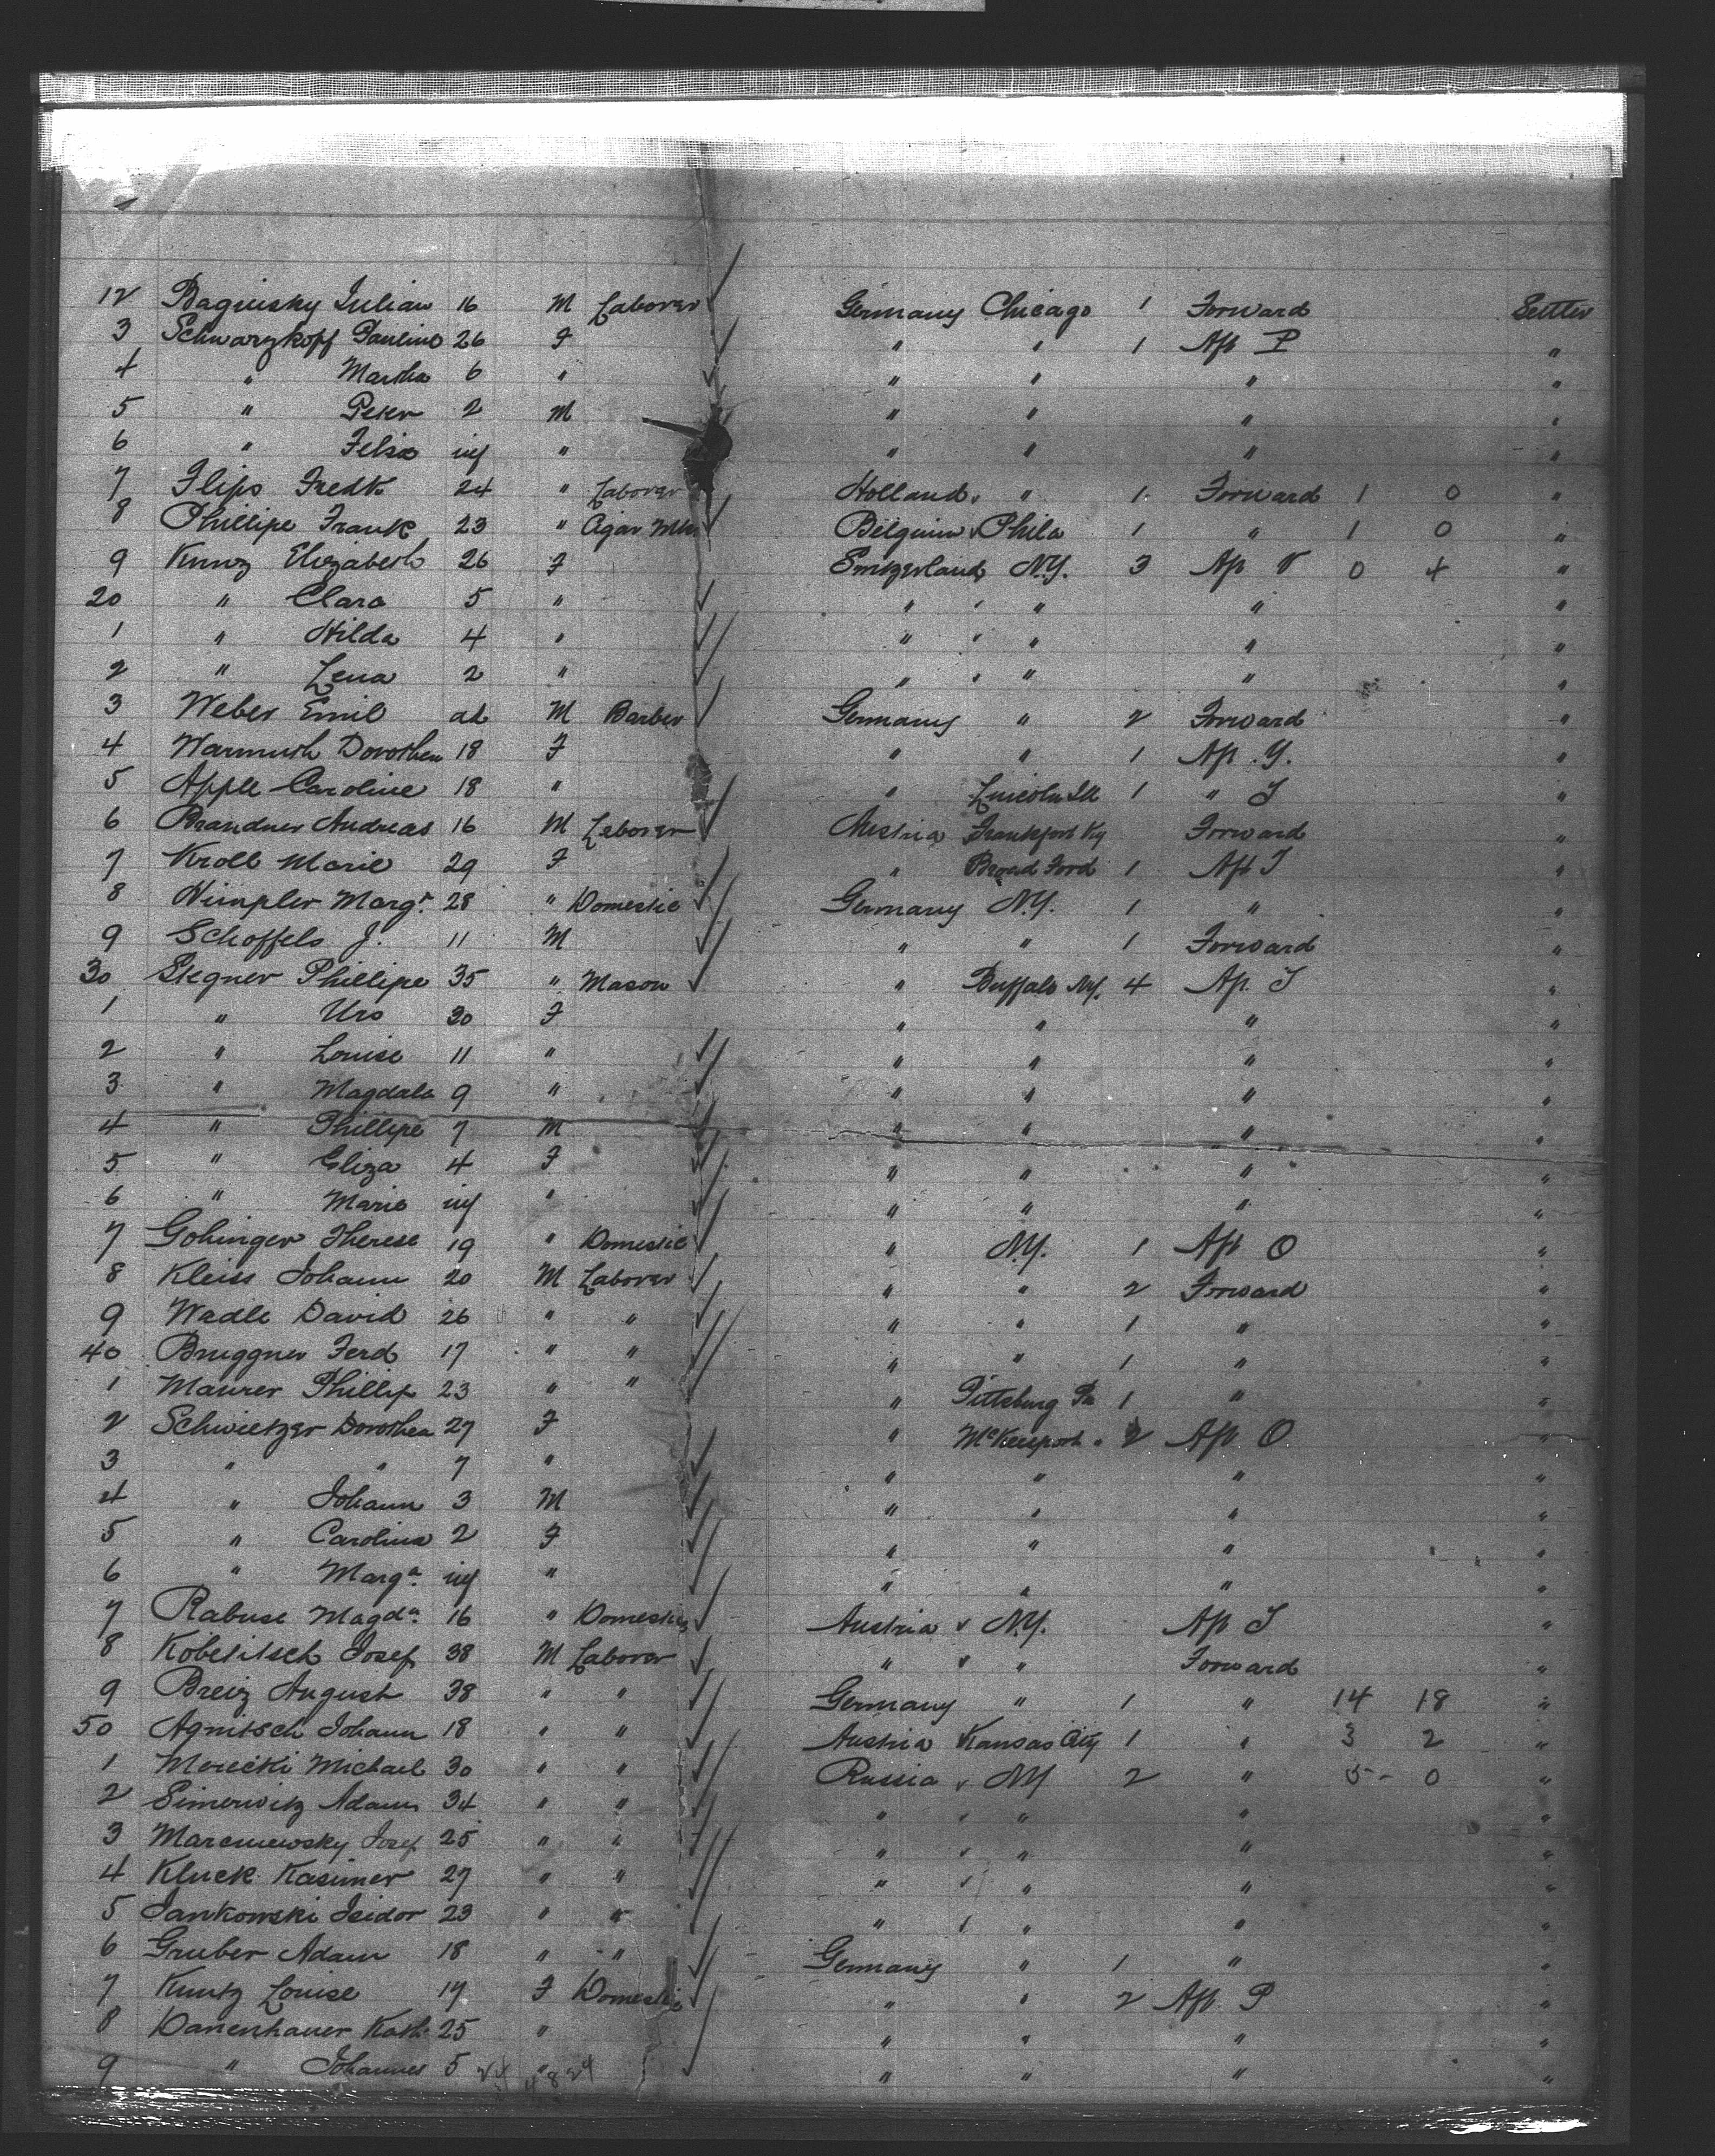 12 Baginsky Julian 16 M Laborer Germany Chicago 1 Forward Settler
3 Schwarzkopf Pauline 26 F " " 1 Aft P "
4 " Martha 6 " " " " "
5 " Peter 2 M " " " "
6 " Felix inf " " " " "
7 Flips Fredk 24 " Laborer Holland " 1 Forward 1 0 "
8 Phillipe Frank 23 " Cigar Mkr Belgium Phila 1 " 1 0 "
9 Kunz Elizabeth 26 F Switzerland N.Y. 3 Aft 0 4 "
20 " Clara 5 " " " " "
1 " Hilda 4 " " " " "
2 " Lena 2 " " " " "
3 Weber Emil M Barber Germany " 2 Forward "
4 Warmuth Dorothea 18 F " " 1 Aft Y. "
5 Apple Caroline 18 " " Lincoln Ill 1 " I "
6 Brandner Andreas 16 M Laborer Austria Frankfort Ky Forward "
7 Kroll Marie 29 F " Broad Ford 1 Aft I "
8 Wimpler Margt 28 " Domestic Germany N.Y. 1 " "
9 Schoffels J. 11 M " " 1 Forward "
30 Stegner Phillipe 35 " Mason " Buffalo N.Y. 4 Aft I "
1 " Urs 30 F " " " "
2 " Louise 11 " " " " "
3 " Magdala 9 " " " " "
4 " Phillipe 7 M " " " "
5 " Eliza 4 F " " " "
6 " Marie inf " " " " "
7 Gohinger Therese 19 " Domestic " N.Y. 1 Aft O "
8 Kleiss Johann 20 M Laborer " " 2 Forward "
9 Wadle David 26 " " " " 1 " "
40 Bruggner Ferd 17 " " " " 1 " "
1 Maurer Phillip 23 " " " Pittsburg Pa 1 " "
2 Schwietzer Dorothea 27 F " McKeesport " 2 Aft O "
3 " " 7 " " " " "
4 " Johann 3 M " " " "
5 " Carolina 2 F " " " "
6 " Marga inf " " " " "
7 Rabuse Magda 16 " Domestic Austria N.Y. Aft I "
8 Kobelitsch Josef 38 M Laborer " " Forward "
9 Breiz August 38 " " Germany " 1 " 14 18 "
50 Agnitsch Johann 18 " " Austria Kansas City 1 " 3 2 "
1 Morecki Michael 30 " " Russia N.Y. 2 " 5 - 0 "
2 Simerwitz Adam 34 " " " " " "
3 Marcinewsky Josef 25 " " " " " "
4 Kluck Kasimer 27 " " " " " "
5 Jankowski Isidor 23 " " " " " "
6 Gruber Adam 18 " " Germany " 1 " "
7 Kuntz Louise 19 F Domestic " " 2 Aft P "
8 Danenhauer Kath. 25 " " " " "
9 " Johannes 5 " " " " "